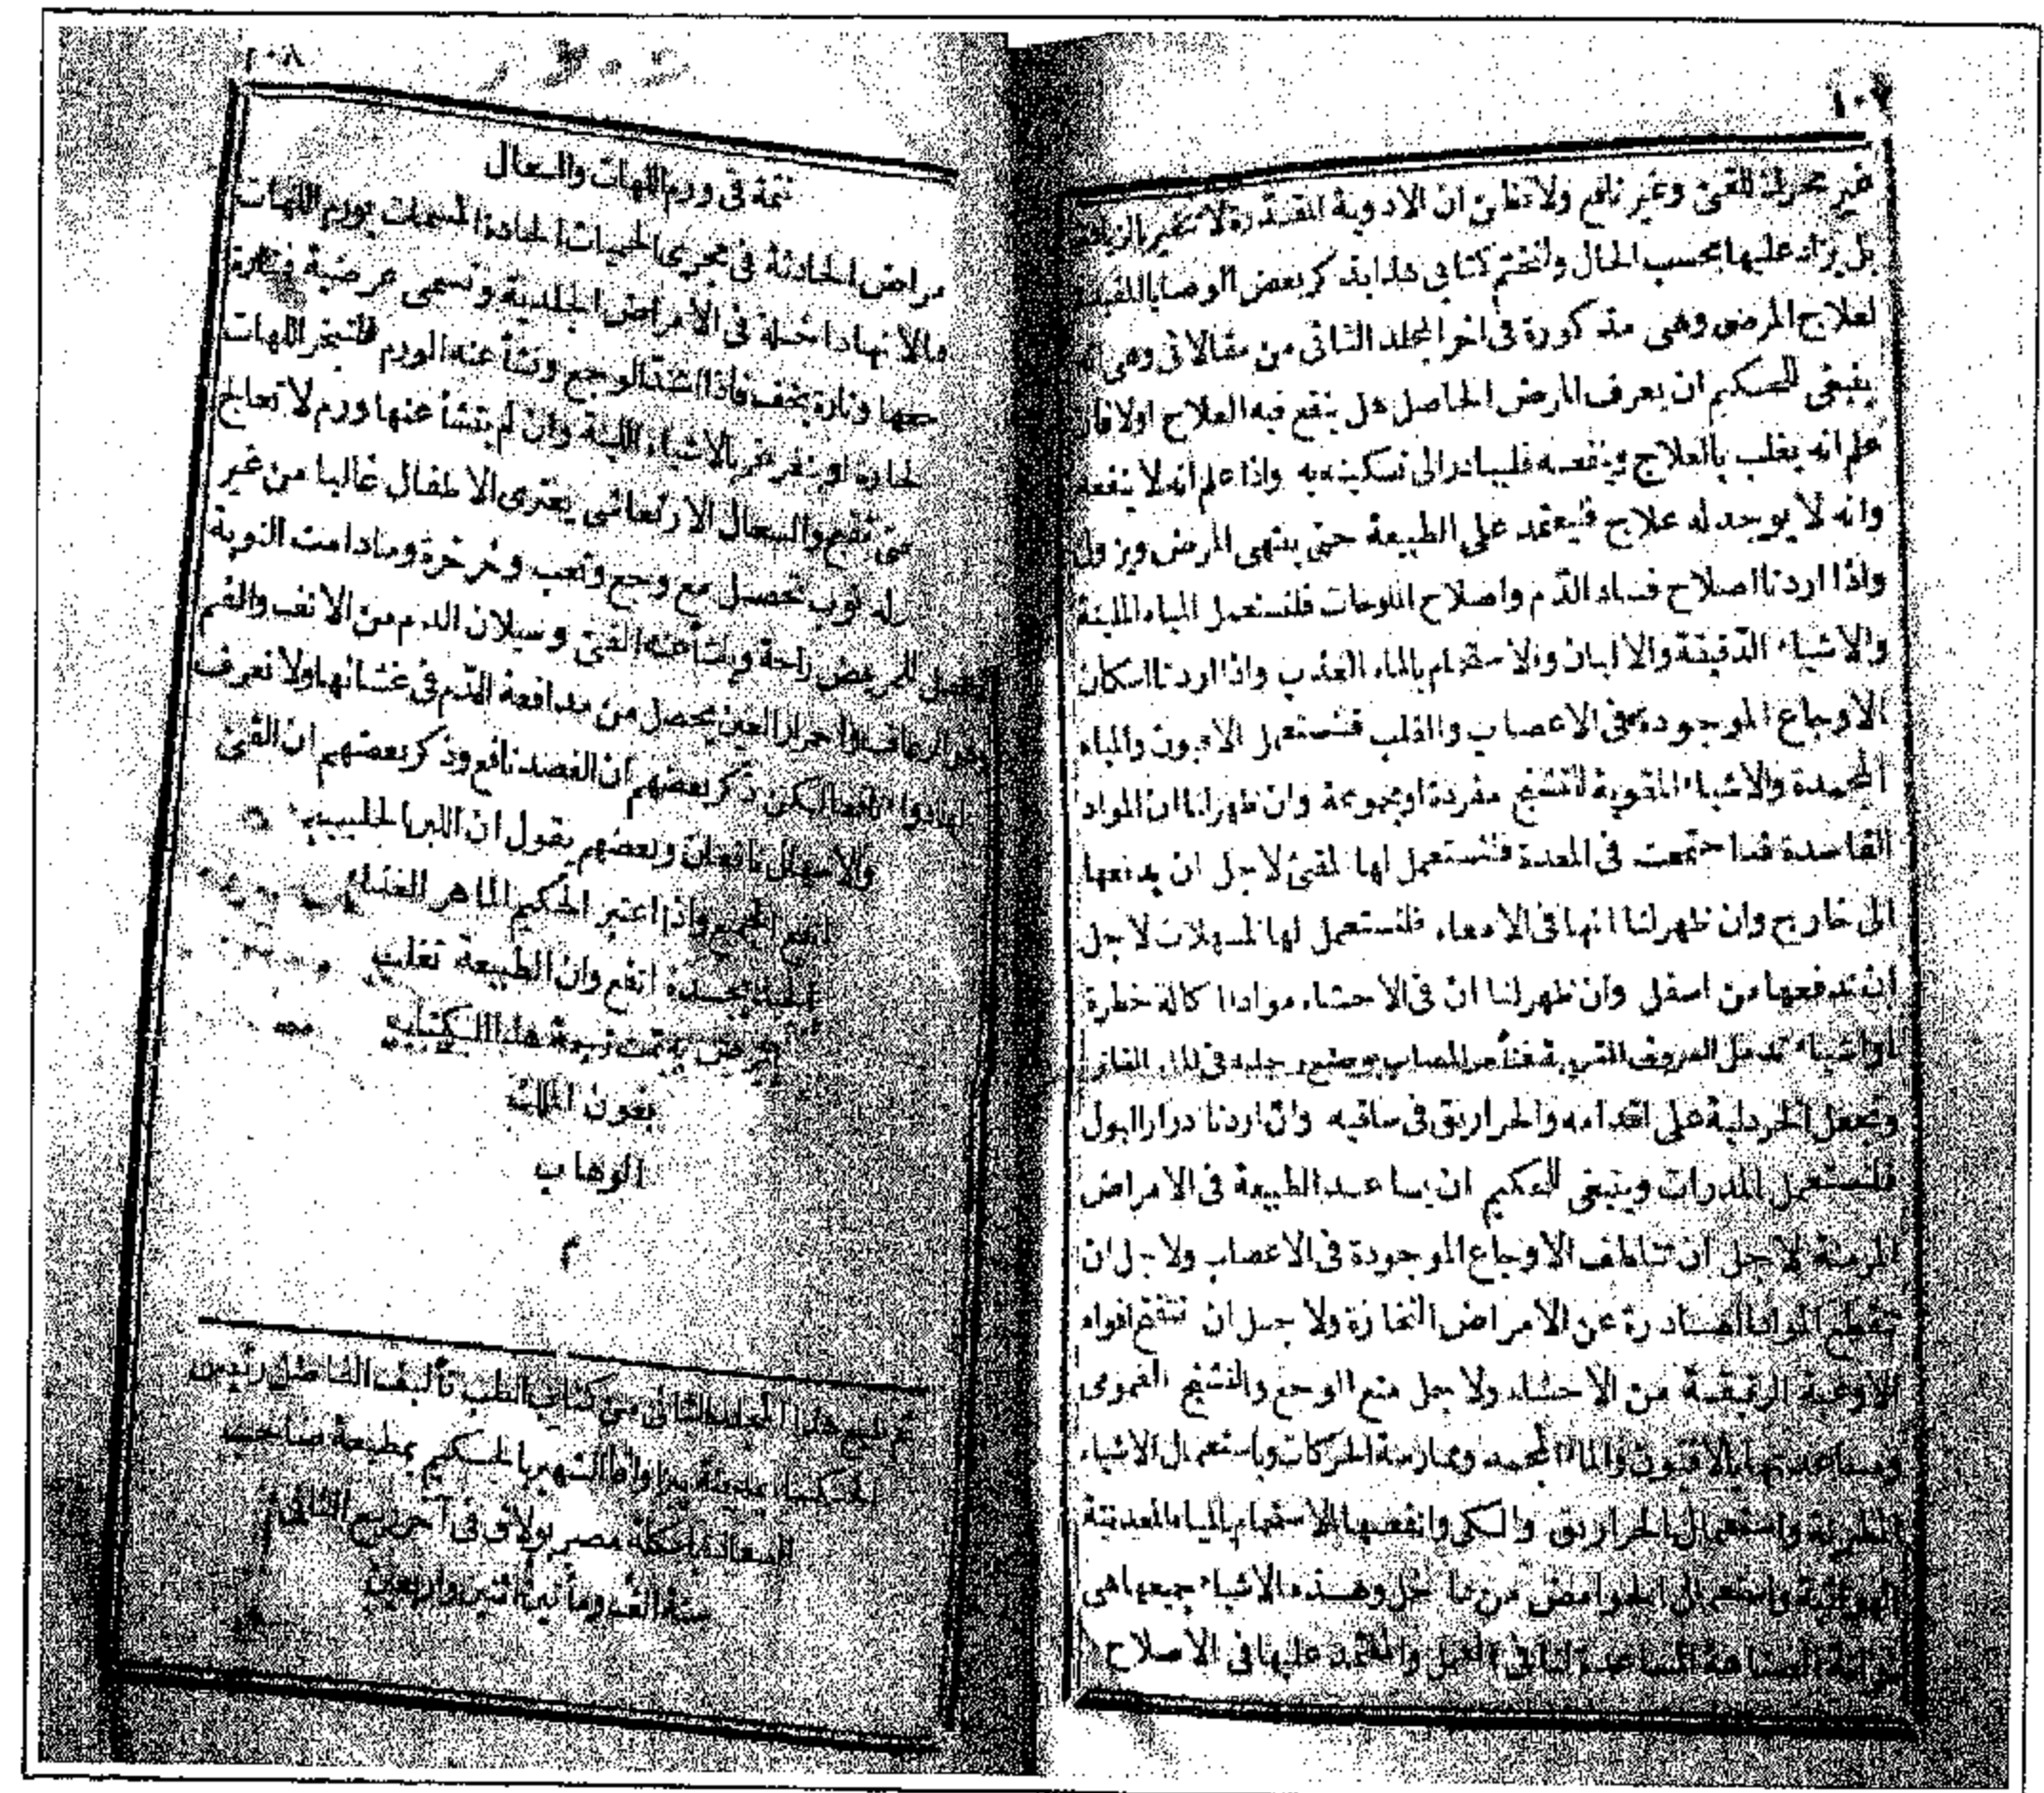 ١٠٧
غير محرك للقئ وغير نافع ولا تظن ان الادوية المقتدرة لا تتغير بالزيادة
بل يزاد عليها بحسب الحال ولنختم كتابى هذا بذكر بعض الوصايا المفيدة
لعلاج المرضى وهى مذكورة فى اخر المجلد الثانى من مقالاتى وهى انه
ينبغى للحكيم ان يعرف المرض الحاصل هل ينفع فيه العلاج اولا فان
علم انه يغلب بالعلاج وينفعه فليبادر الى تسكينه به واذا علم انه لا ينفعه
وانه لا يوجد له علاج فيعتمد على الطبيعة حتى ينتهى المرض ويزول
واذا اردنا اصلاح فساد الدّم واصلاح الملوحات فلنستعمل المياه الملينة
والاشياء الدّقيقة والالبان والاستحمام بالماء العذب واذا اردنا اسكان
الاوجاع الموجودة فى الاعصاب والقلب فنستعمل الافيون والمياه
المجمدة والاشياء المقوية للتشنج مفردة او مجموعة وان ظهر لنا ان المواد
الفاسدة قد اجتمعت فى المعدة فنستعمل لها المقئ لاجل ان يدفعها
الى خارج وان ظهر لنا انها فى الامعاء فلنستعمل لها المسهلات لاجل
ان تدفعها من اسفل وان ظهر لنا ان فى الاحشاء موادا اكالة خطرة
او اشياء تدخل العروق المصاب يوضع رجليه فى الماء الفاتر
وتجعل الخردلية على اقدامه والحراريق فى ساقيه وان اردنا درار البول
فلنستعمل المدرات وينبغى للحكيم ان يساعد الطبيعة فى الامراض
المزمنة لاجل ان تتلطف الاوجاع الموجودة فى الاعصاب ولاجل ان
تقطع المواد الصادرة عن الامراض ولاجل ان تنفتح افواه
الاوعية الرقيقة من الاحشاء ولاجل منع الوجع والتشنج
ومساعدتها بالافيون والماء المجمد وممارسة الحركات وباستعمال الاشياء
الطرية واستعمال الحراريق والكى وانفعها الاستحمام بالمياه المعدنية
واستعمال الحوامض من داخل وهذه الاشياء جميعها هى
الصناعة المساعدة لنا فى العمل والمعتمد عليها فى الاصلاح
١٠٨
تتمة فى ورم اللهات والسعال
مراض الحادثة فى مجرى الحميات الحادة المسمات بورم اللهات
داخلة فى الامراض الجلدية وتسمى عرضية فتارة
وتارة يخف فاذا اشتد الوجع ونشأ عنه الورم فلتبخر اللهات
بالاشياء اللينة وان لم ينشأ عنها ورم لا تعالج
والسعال الارتعاشى يعترى الاطفال غالبا من غير
نوب تحصل مع وجع وتعب وخرخرة ومادامت النوبة
للمريض راحة وينشأ عنه القئ وسيلان الدم من الانف والفم
واحمرار العين يحصل من مدافعة الدّم فى غشائها ولا نعرف
لكن ذكر بعضهم ان الفصد نافع وذكر بعضهم ان القئ
والاسهال نافعان وبعضهم يقول ان
انفع الجميع واذا اعتبر الحكيم الماهر
انفع وان الطبيعة تغلب
المرض به تمت ترجمة هذا الكتاب
بعون الملك
الوهاب
م
تم طبع هذا المجلد الثانى من كتاب الطب تأليف الفاضل رئيس
الحكماء بمدينة الشهير بالحكيم بمطبعة صاحب
السعادة مصر بولاق فى آخر ربيع الثانى
سنة الف ومأتين اثنين واربعين